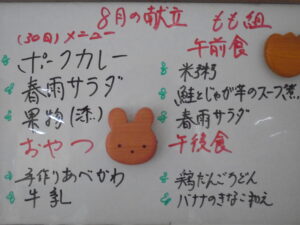 8月の献立 もも組
(30日)メニュー
ポークカレー
春雨サラダ
果物(漆)
おやつ
手作りあべかわ
牛乳
午前食
米粥
鮭とじゃが芋のスープ煮
春雨サラダ
午後食
鶏だんごうどん
バナナのきなこ和え